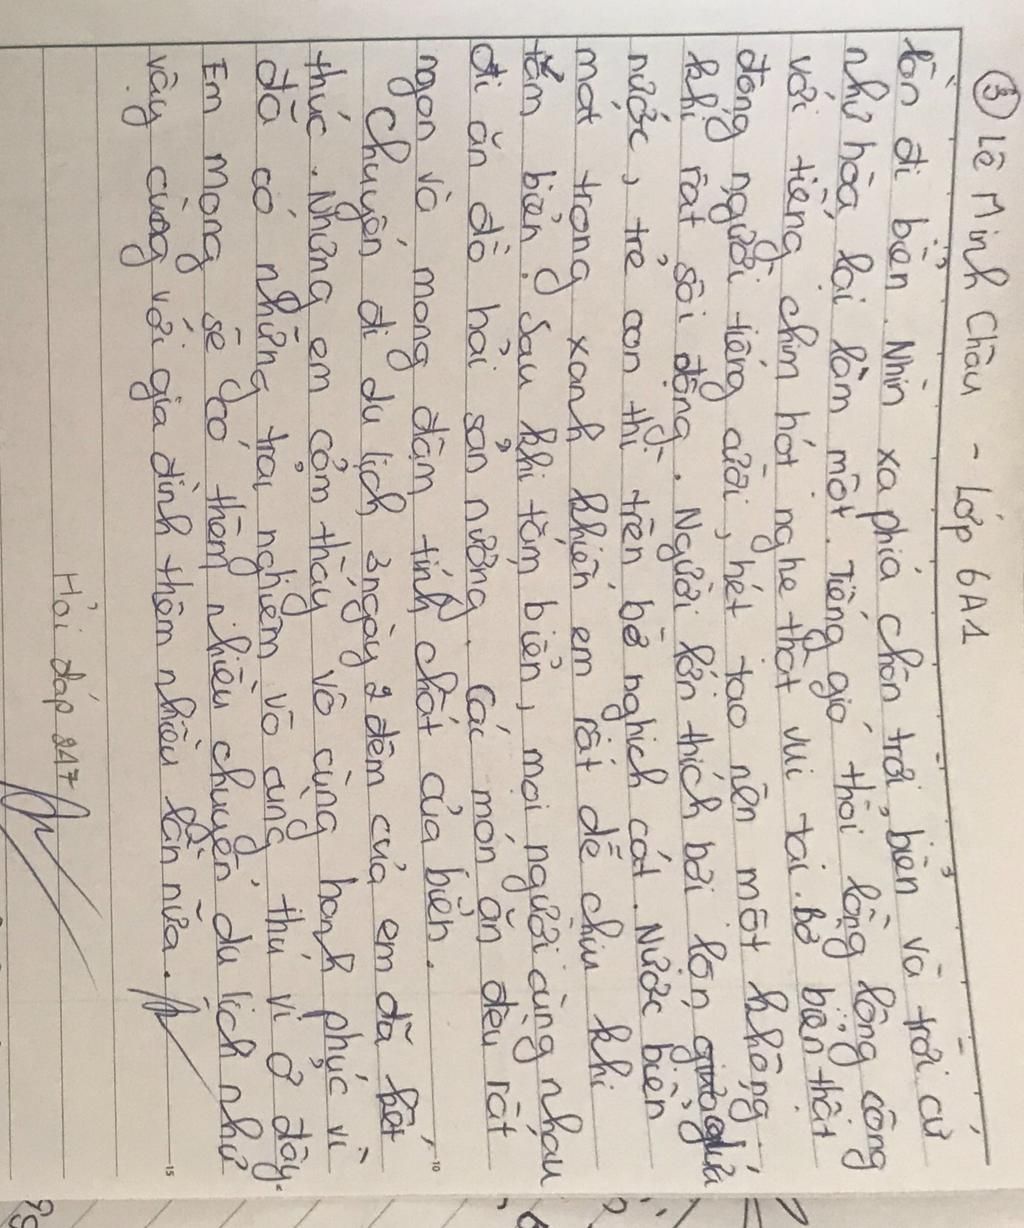 ③ Lê Minh Châu - Lớp 6A1
lồn đi biển. Nhìn xa phiá chân trời, biển và trời cứ
như hòa lại làm một. Tiếng gió thổi lồng lộng cộng
với tiếng chim hót nghe thật vui tai. Bờ biển thật
đông người tiếng cười, hét tạo nên một không
khí rất sôi động. Người lớn thích bơi lặn giữa
nước, trẻ con thì trên bờ nghịch cát. Nước biển
mát trong xanh khiến em rất dễ chịu khi
tắm biển. Sau khi tắm biển, mọi người cùng nhau
đi ăn đồ hải sản nướng. Các món ăn đều rất
ngon và mang đậm tính chất của biển.
Chuyến đi du lịch 3 ngày 2 đêm của em đã kết
thúc. Nhưng em cảm thấy vô cùng hạnh phúc vì
đã có những trải nghiệm vô cùng thú vị ở đây.
Em mong sẽ có thêm nhiều chuyến du lịch như
vậy cùng với gia đình thêm nhiều lần nữa.
Hỏi đáp 247
10
15